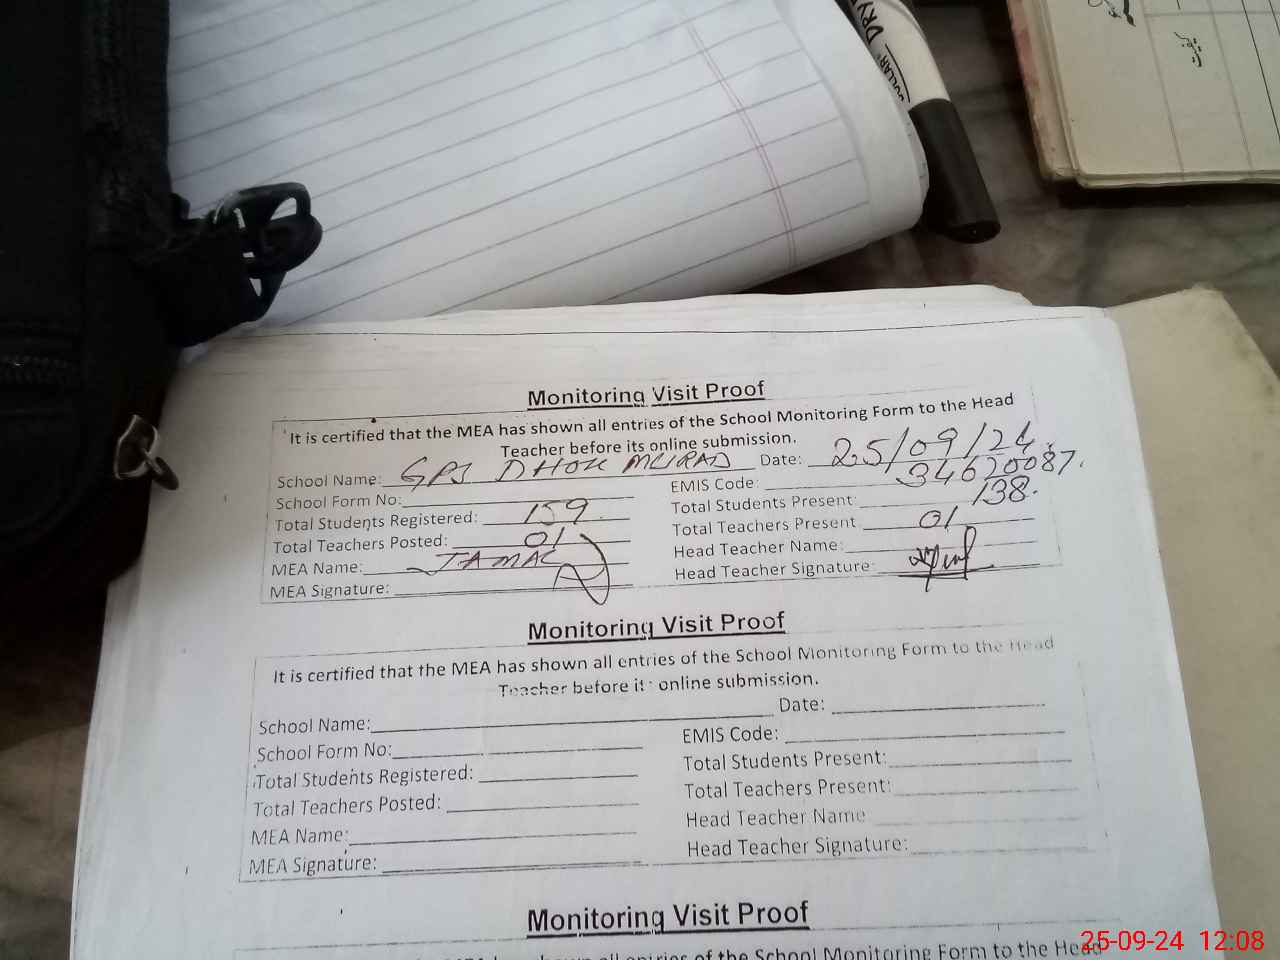 DOLLAR DRY
Monitoring Visit Proof
It is certified that the MEA has shown all entries of the School Monitoring Form to the Head
Teacher before its online submission.
School Name: GPS DHOK MURAD Date: 25/09/24
School Form No: EMIS Code: 34620087.
Total Students Registered: 159 Total Students Present: 138.
Total Teachers Posted: 01 Total Teachers Present 01
MEA Name: JAMAL Head Teacher Name:
MEA Signature: Head Teacher Signature:
Monitoring Visit Proof
It is certified that the MEA has shown all entries of the School Monitoring Form to the Head
Teacher before its online submission.
School Name: Date:
School Form No: EMIS Code:
Total Students Registered: Total Students Present:
Total Teachers Posted: Total Teachers Present:
MEA Name: Head Teacher Name
MEA Signature: Head Teacher Signature:
Monitoring Visit Proof
shown all entries of the School Monitoring Form to the Head
25-09-24 12:08